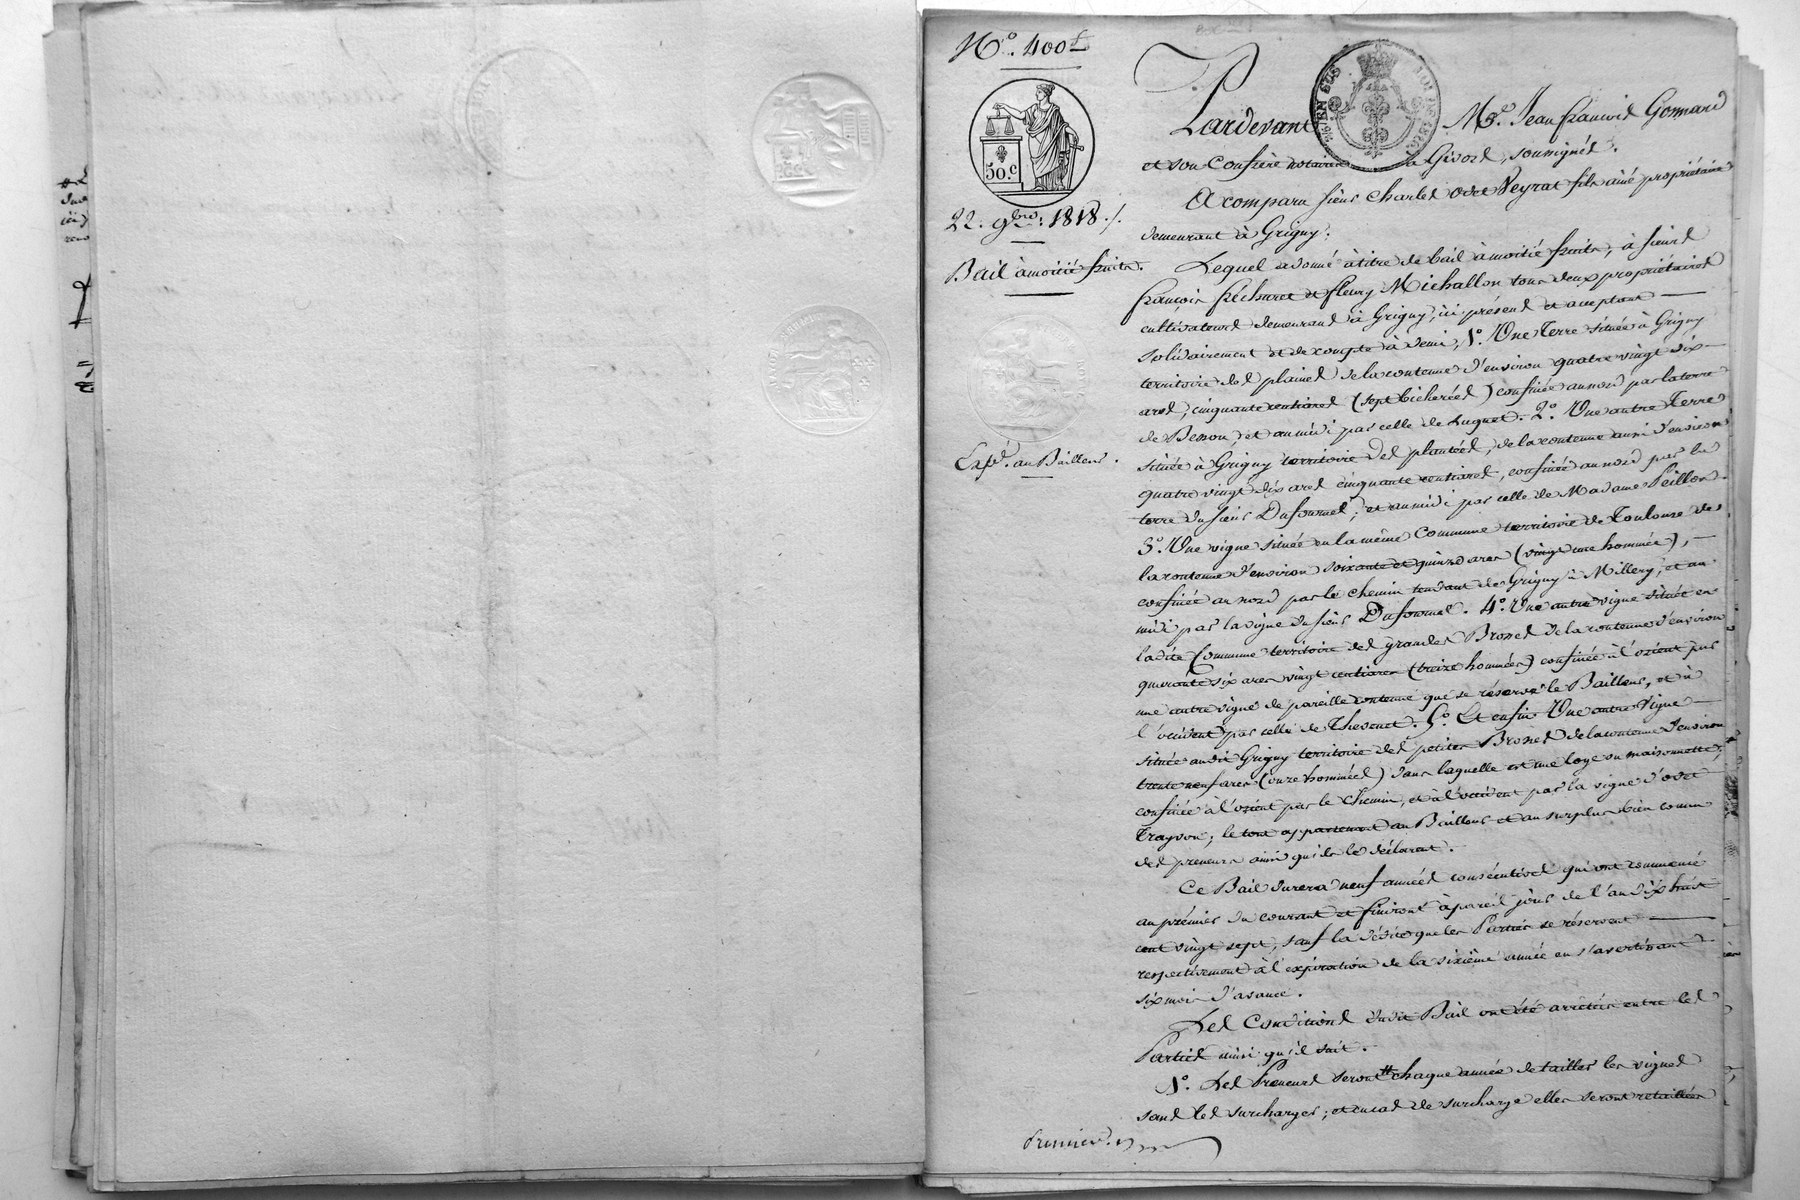 N.° 400.
50.c
22. 9bre. 1818.
Bail à moitié fruits.
Expé. au Bailleur.
Pardevant Me. Jean françois Gonnard
et son Confrère notaires à Givors, soussignés.
A comparu sieur Charles Ovré Veyrat fils ainé propriétaire
demeurant à Grigny;
Lequel a donné à titre de bail à moitié fruits, à sieurs
françois fléchuret et fleury Michallon tous deux propriétaires
cultivateurs demeurant à Grigny, ici présens et acceptans
solidairement et de compte à demi, 1.° Une Terre située à Grigny
territoire des plaines de la contenue d'environ quatre vingt dix
ares, cinquante centiares (sept bicherées) confinée au nord par la terre
de Besson, et au midi par celle de Luguet. 2.° Une autre Terre
située à Grigny territoire des plantées, de la contenue aussi d'environ
quatre vingt dix ares cinquante centiares, confinée au nord par la
terre du sieur Dufournel, et au midi par celle de Madame Peillon.
3.° Une vigne située en la même Commune territoire de Toulouse de
la contenue d'environ soixante et quinze ares (vingt une hommée),
confinée au nord par le chemin tendant de Grigny à Millery, et au
midi par la vigne du sieur Dufournel. 4.° Une autre vigne située en
ladite Commune territoire des grandes Brosses de la contenue d'environ
quarante six ares vingt centiares (treize hommées) confinée à l'orient par
une autre vigne de pareille contenue que se réserve le Bailleur, et à
l'occident par celle de Thevenet. 5.° Et enfin Une autre Vigne
située audit Grigny territoire des petites Brosses de la contenue d'environ
trente neuf ares (onze hommées) dans laquelle est une loge ou maisonnette,
confinée à l'orient par le Chemin, et à l'occident par la vigne d'ovré
Trayvon; le tout appartenant au Bailleur et au surplus bien connu
des preneurs ainsi qu'ils le déclarent.
Ce Bail durera neuf années consécutives qui ont commencé
au premier du courant et finiront à pareil jour de l'an dix huit
cent vingt sept, sauf la dédite que les Parties se réservent
respectivement à l'expiration de la sixième année en s'avertissant
six mois d'avance.
Les Conditions dudit Bail ont été arrêtées entre les
Parties ainsi qu'il suit.
1.° Les Preneurs seront chaque année de tailler les vignes
sans les surcharger; et en cas de surcharge elles seront retaillées
Premier.